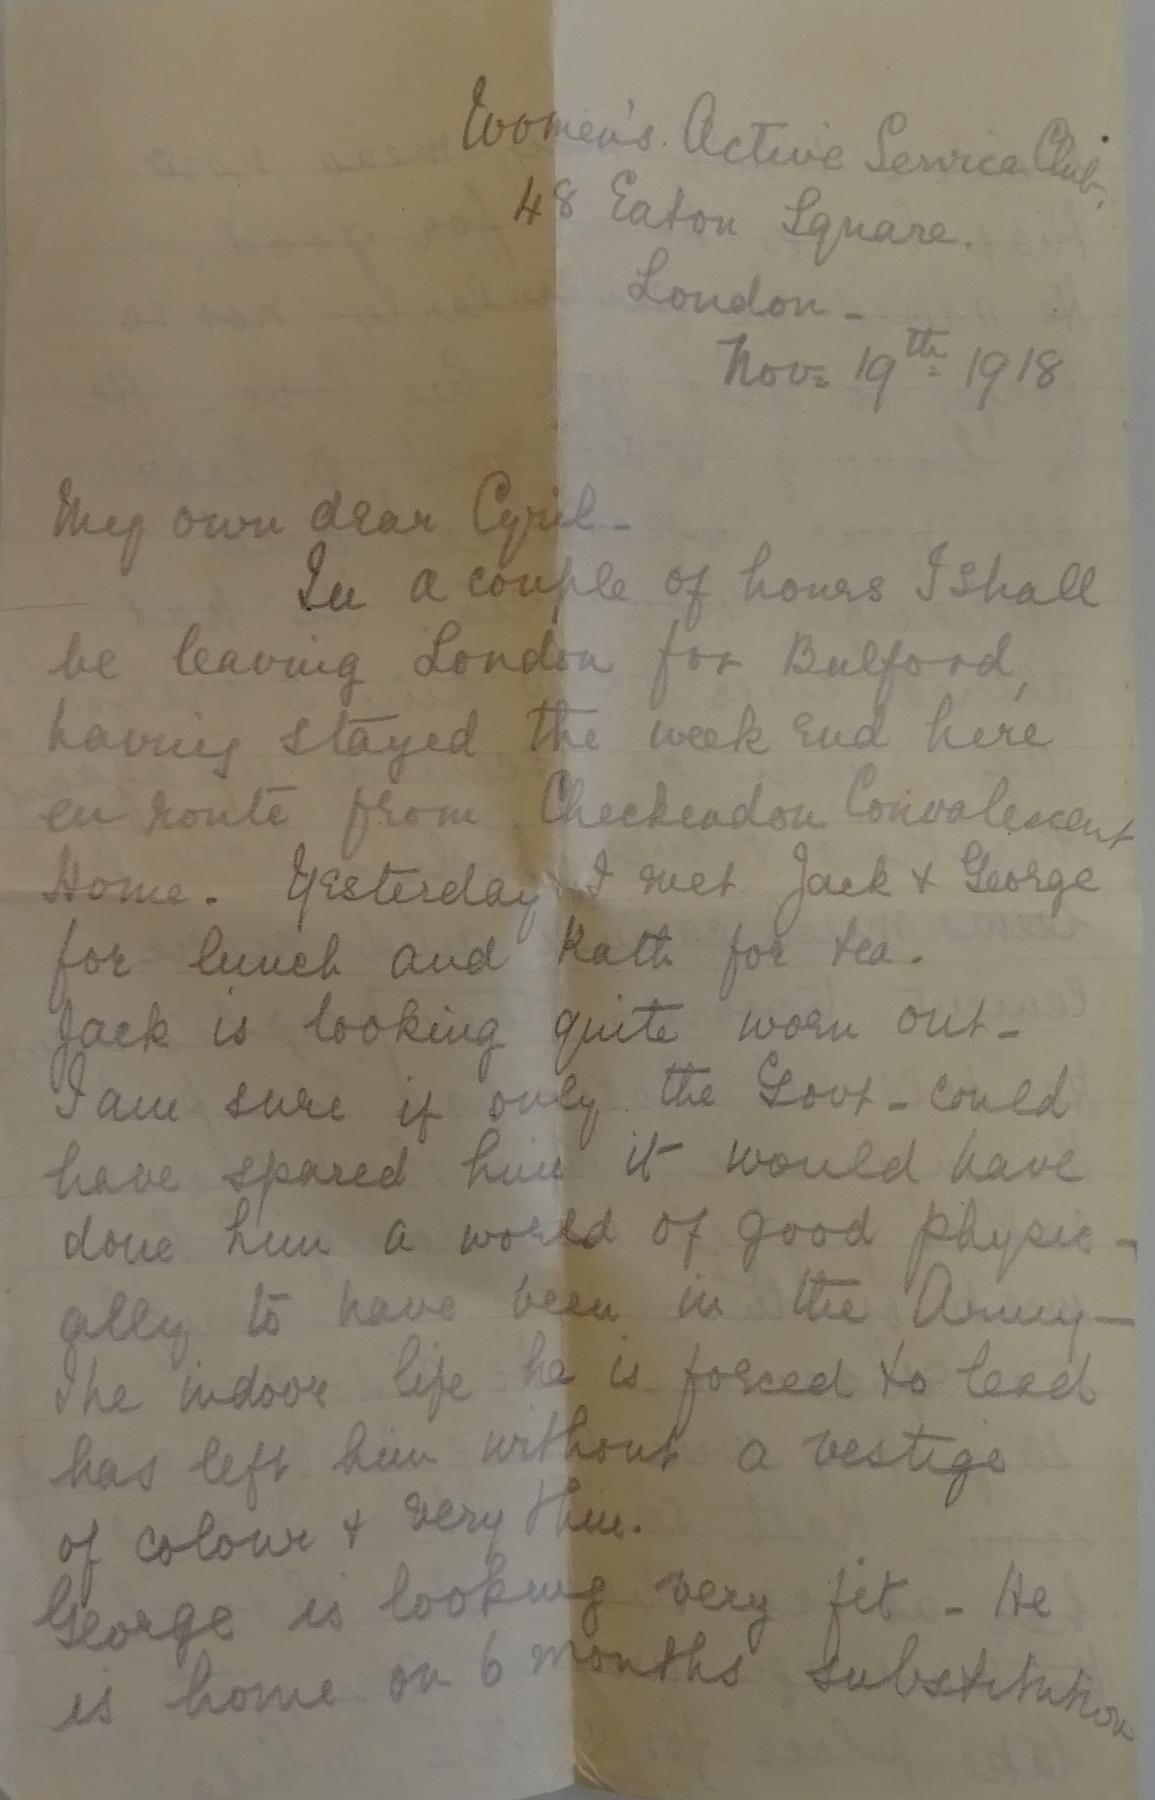 Women's Active Service Club,
48 Eaton Square.
London -
Nov= 19th 1918
My own dear Cyril -
In a couple of hours I shall
be leaving London for Bulford,
having stayed the week end here
en route from Checkendon Convalescent
Home. Yesterday I met Jack & George
for lunch and Kath for tea.
Jack is looking quite worn out -
I am sure if only the Govt - could
have spared him it would have
done him a world of good physic -
ally to have been in the Army -
The indoor life he is forced to lead
has left him without a vestige
of colour & very thin.
George is looking very fit - He
is home on 6 months substitution